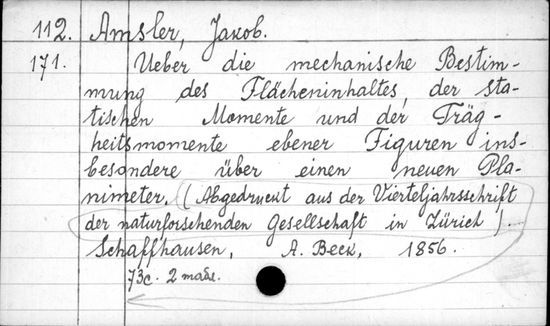 112. Amsler, Jakob.
171. Ueber die mechanische Bestim-
mung des Flächeninhaltes, der sta-
tischen Momente und der Träg-
heitsmomente ebener Figuren ins-
besondere über einen neuen Pla-
nimeter. (Abgedruckt aus der Vierteljahrsschrift
der naturforschenden Gesellschaft in Zürich).
Schaffhausen, A. Beck, 1856.
73c. 2 mads.